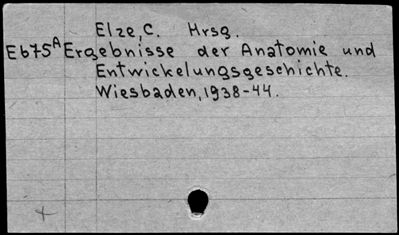 Elze, C. Hrsg.
Eb75A Ergebnisse der Anatomie und
Entwickelungsgeschichte.
Wiesbaden, 1938-44.